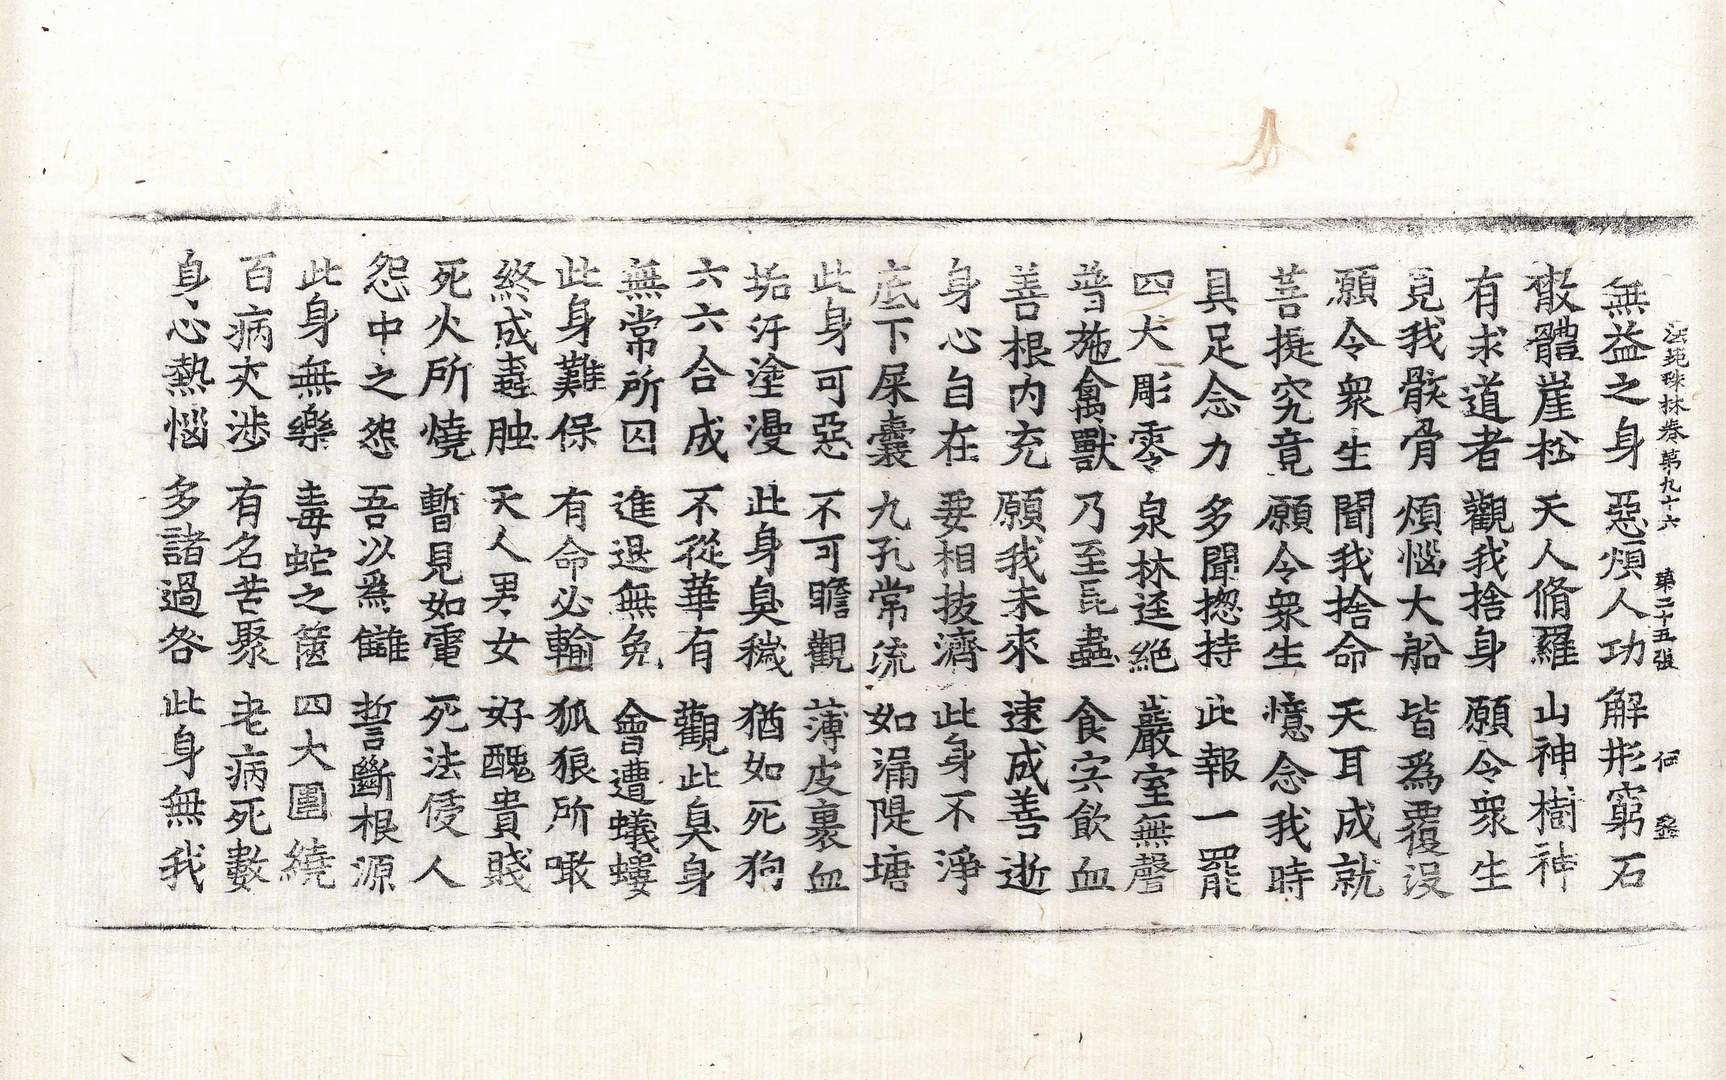 法苑珠林卷第九十六 第二十五張 何
無益之身 惡煩人功 解形窮石
散體崖松 天人脩羅 山神樹神
有求道者 觀我捨身 願令衆生
見我骸骨 煩惱大船 皆爲覆沒
願令衆生 聞我捨命 天耳成就
菩提究竟 願令衆生 憶念我時
具足念力 多聞揔持 此報一罷
四大彫零 泉林逕絶 巖室無聲
普施禽獸 乃至昆蟲 食宍飮血
善根内充 願我未來 速成善逝
身心自在 要相拔濟 此身不淨
底下屎囊 九孔常流 如漏隄塘
此身可惡 不可瞻觀 薄皮裹血
垢汙塗漫 此身臭穢 猶如死狗
六六合成 不從華有 觀此臭身
無常所囚 進退無免 會遭蟻螻
此身難保 有命必輸 狐狼所噉
終成毒蛆 天人男女 好醜貴賤
死火所燒 暫見如電 死法侵人
怨中之怨 吾以爲讎 誓斷根源
此身無樂 毒蛇之篋 四大圍繞
百病交涉 有名苦聚 老病死數
身心熱惱 多諸過咎 此身無我